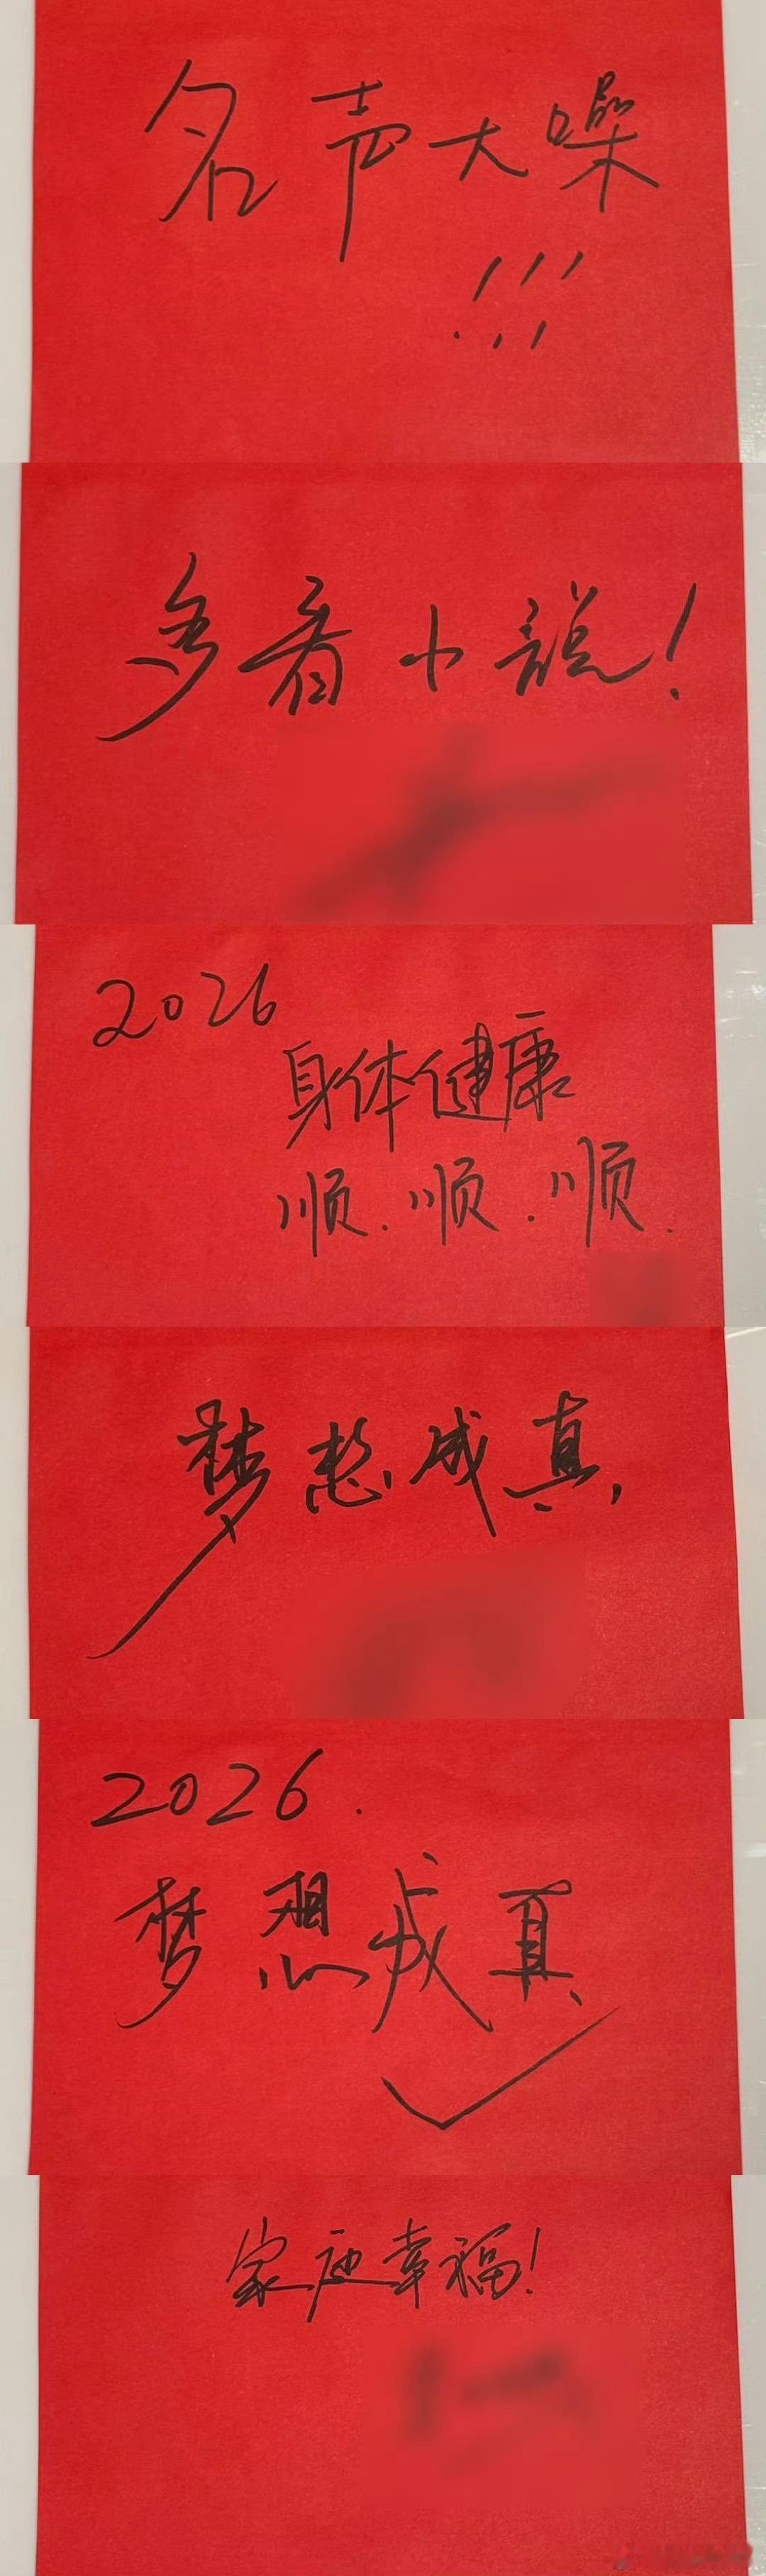 名声大噪
!!!
多看小说!
2026
身体健康
顺.顺.顺.
梦想成真,
2026.
梦想成真
家庭幸福!